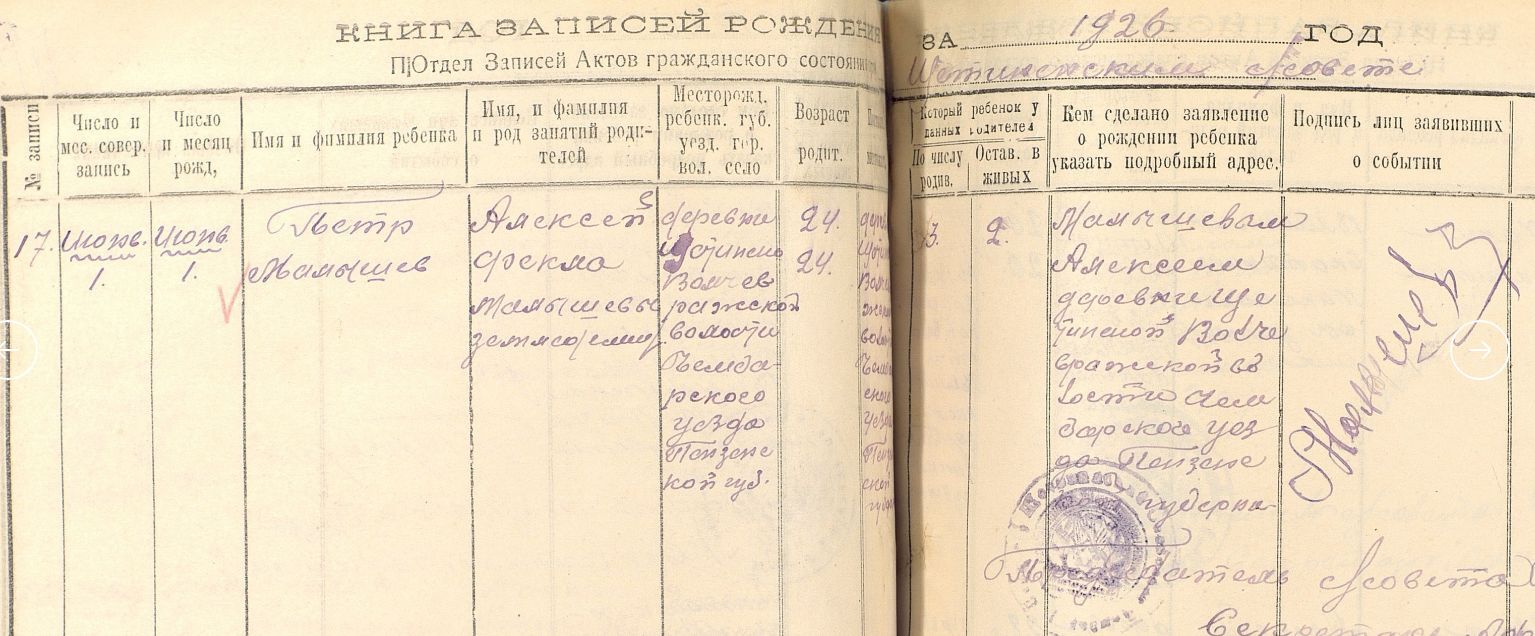 КНИГА ЗАПИСЕЙ РОЖДЕНИ ЗА 1926 ГОД
П|Отдел Записей Актов гражданского состояния Щетининским Совете
№ записи
Число и
мес. совер.
запись
Число
и месяц
рожд,
Имя и фамилия ребенка
Имя, и фамилия
и род занятий роди-
телей
Месторожд.
ребенк. губ.
уезд. гор.
вол. село
Возраст
родит.
Который ребенок у
данных родителей
По числу
родив.
Остав. в
живых
Кем сделано заявление
о рождении ребенка
указать подробный адрес.
Подпись лиц заявивших
о событии
17.
Июнь.
1.
Июнь
1.
Петр
Мамышев
Алексей
Фекла
Мамышевы
земледельцы
деревни
Щетинино
Волчев
ражской
волости
Чемба-
рского
уезда
Пензенс
кой губ.
24.
24.
3.
2.
Мамышевым
Алексеем
деревни Ще
тинской Волче
вражской во
лости Чем
барского уез
да Пензенс
губерни
Председатель Совета
Секретарь